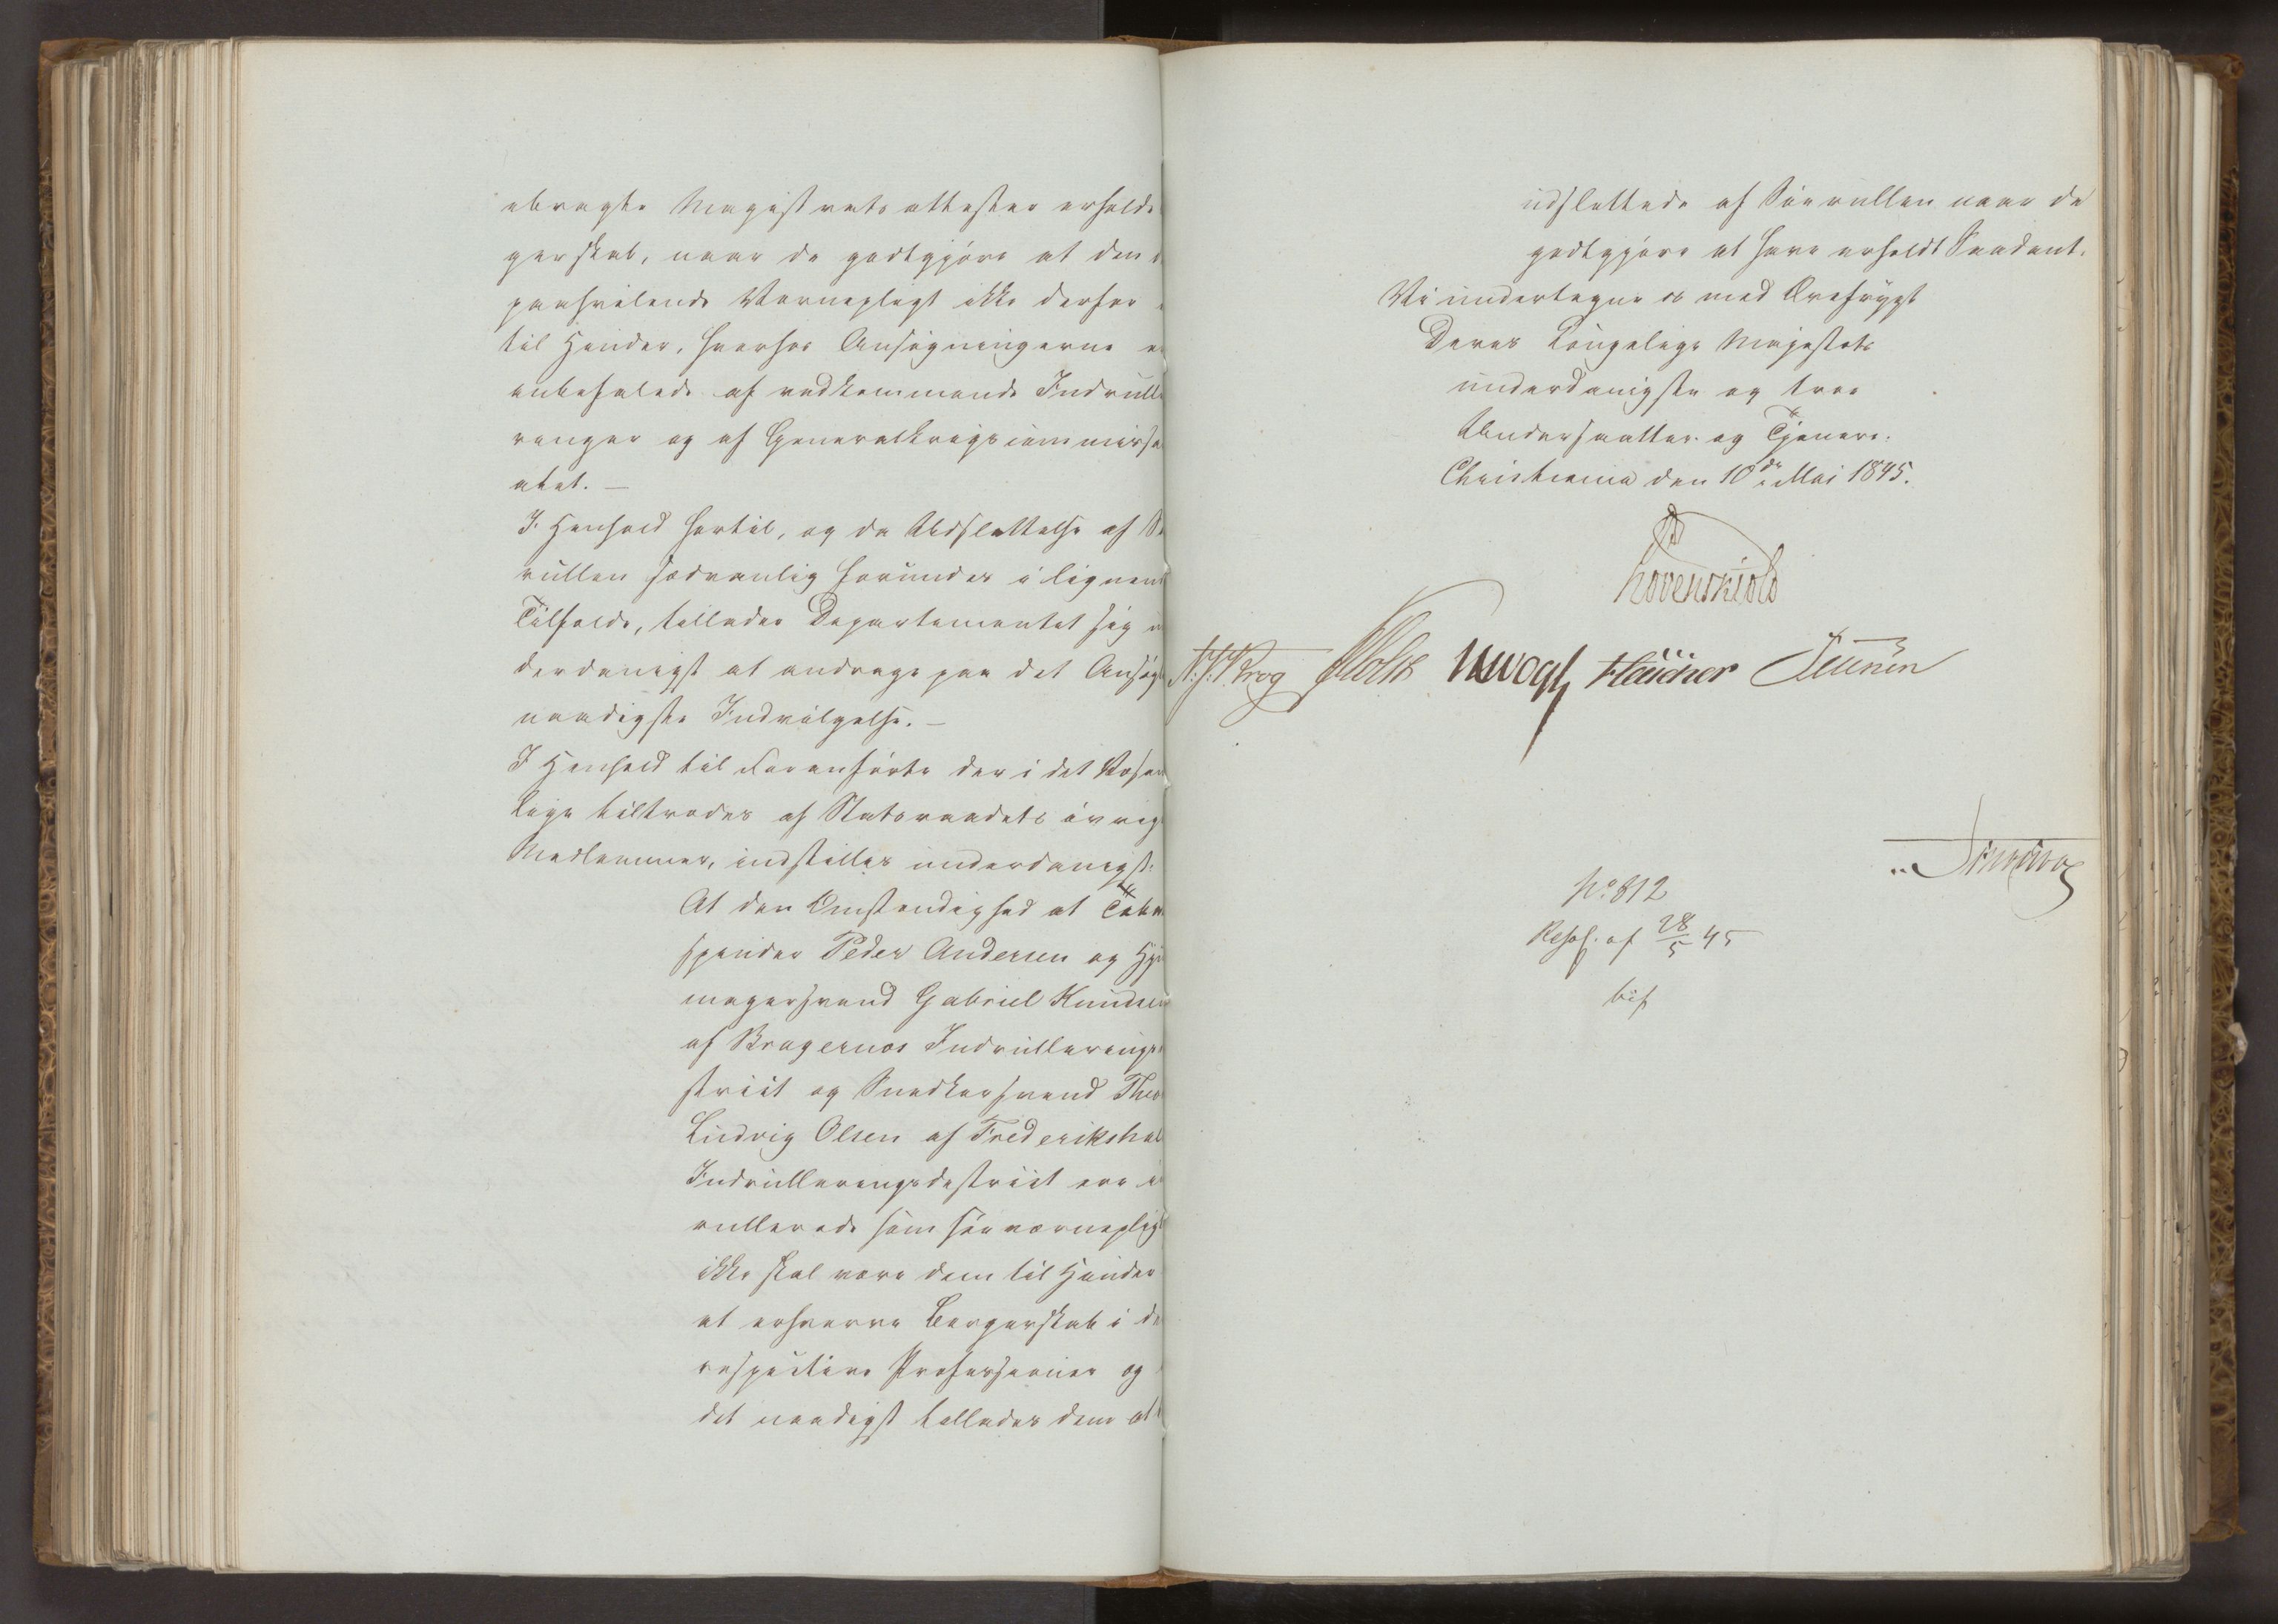 ebragte Magistrats attester erholde
gerskab, naar de godtgjøre at den
paahvilende Værnepligt ikke derfor
til Hinder, hvorfor Ansøgningerne e
anbefalede af vedkommende Indrulle
ringer og af Generalkrigscommissa
atet. —
I Henhold hertil, og da Udslettelse af Sø
rullen sædvanlig forundes i lignend
Tilfælde, tillader Departementet sig u
derdanigst at andrage paa det Ansøgt
naadigste Indvilgelse. —
I Henhold til Foranførte der i det Væsen
lige tiltrædes af Statsraadets øvrig
Medlemmer, indstilles underdanigst:
At den Omstændighed at Tobak
spinder Peder Andersen og Hju
magersvend Gabriel Knudsen
af Bragernæs Indrulleringsdi
strict og Snedkersvend Theo
Ludvig Olsen af Frederikshal
Indrulleringsdistrict ere i
rullerede som søeværnepligt
ikke skal være dem til Hinder
at erhverve Borgerskab i de
respective Professioner og
det naadigst tillades dem at
udslettede af Søerullen naar de
godtgjøre at have erholdt Saadant.
Vi undertegne os med Ærefrygt
Deres Kongelige Majestets
underdanigste og troe
Undersaatter og Tjenere.
Christiania den 10de Mai 1845.
Løvenskiold
N. J. Krog Holst Vogt Fleischer
No 812
Resol. af 28/5 45
bif